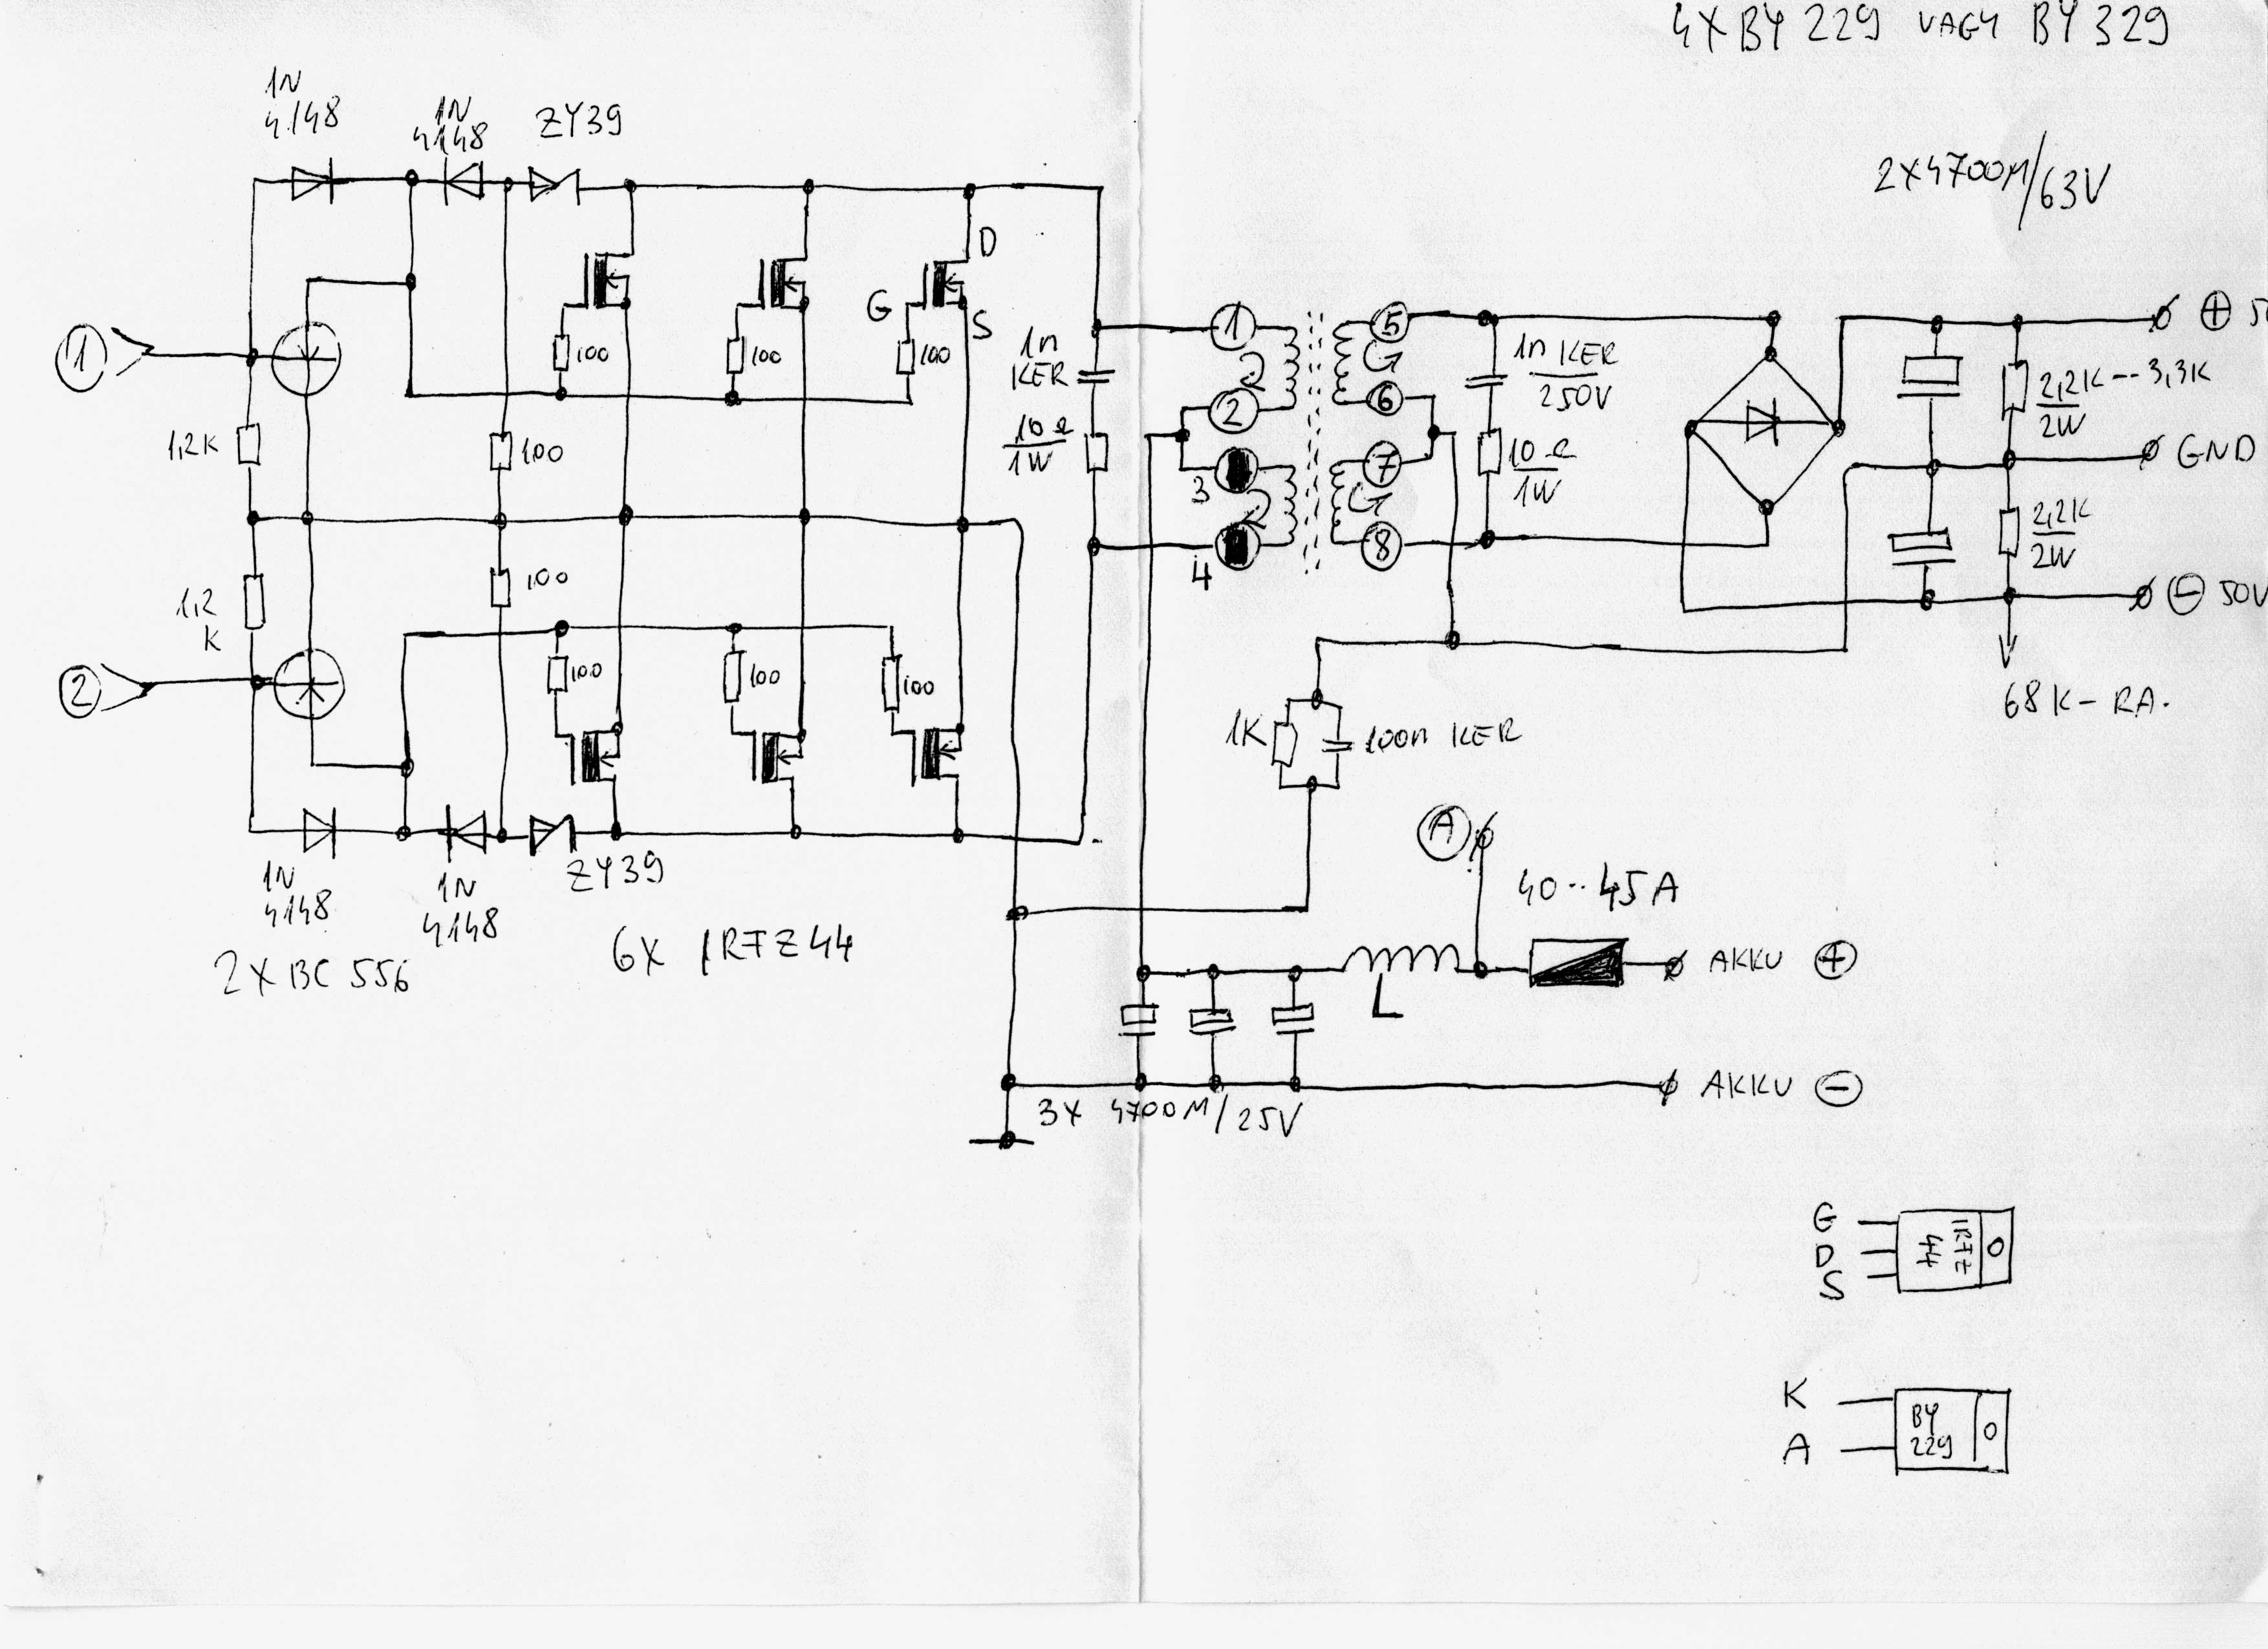 4XBY 229 VAGY BY 329
1N
4148
1N
4148
ZY39
2X4700M/63V
D
G
S
1
100
100
100
1n
KER
10Ω
1W
1
2
3
4
5
6
7
8
1n KER
250V
10Ω
1W
2,2K--3,3K
2W
GND
2,2K
2W
+
- 50V
68K-RA.
1,2K
100
100
1,2
K
2
100
100
100
1K
100n KER
1N
4148
1N
4148
ZY39
2X BC 556
6X IRFZ44
A
40··45A
AKKU +
L
AKKU -
3X 4700M/25V
G
D
S
IRFZ
44
K
A
BY
229